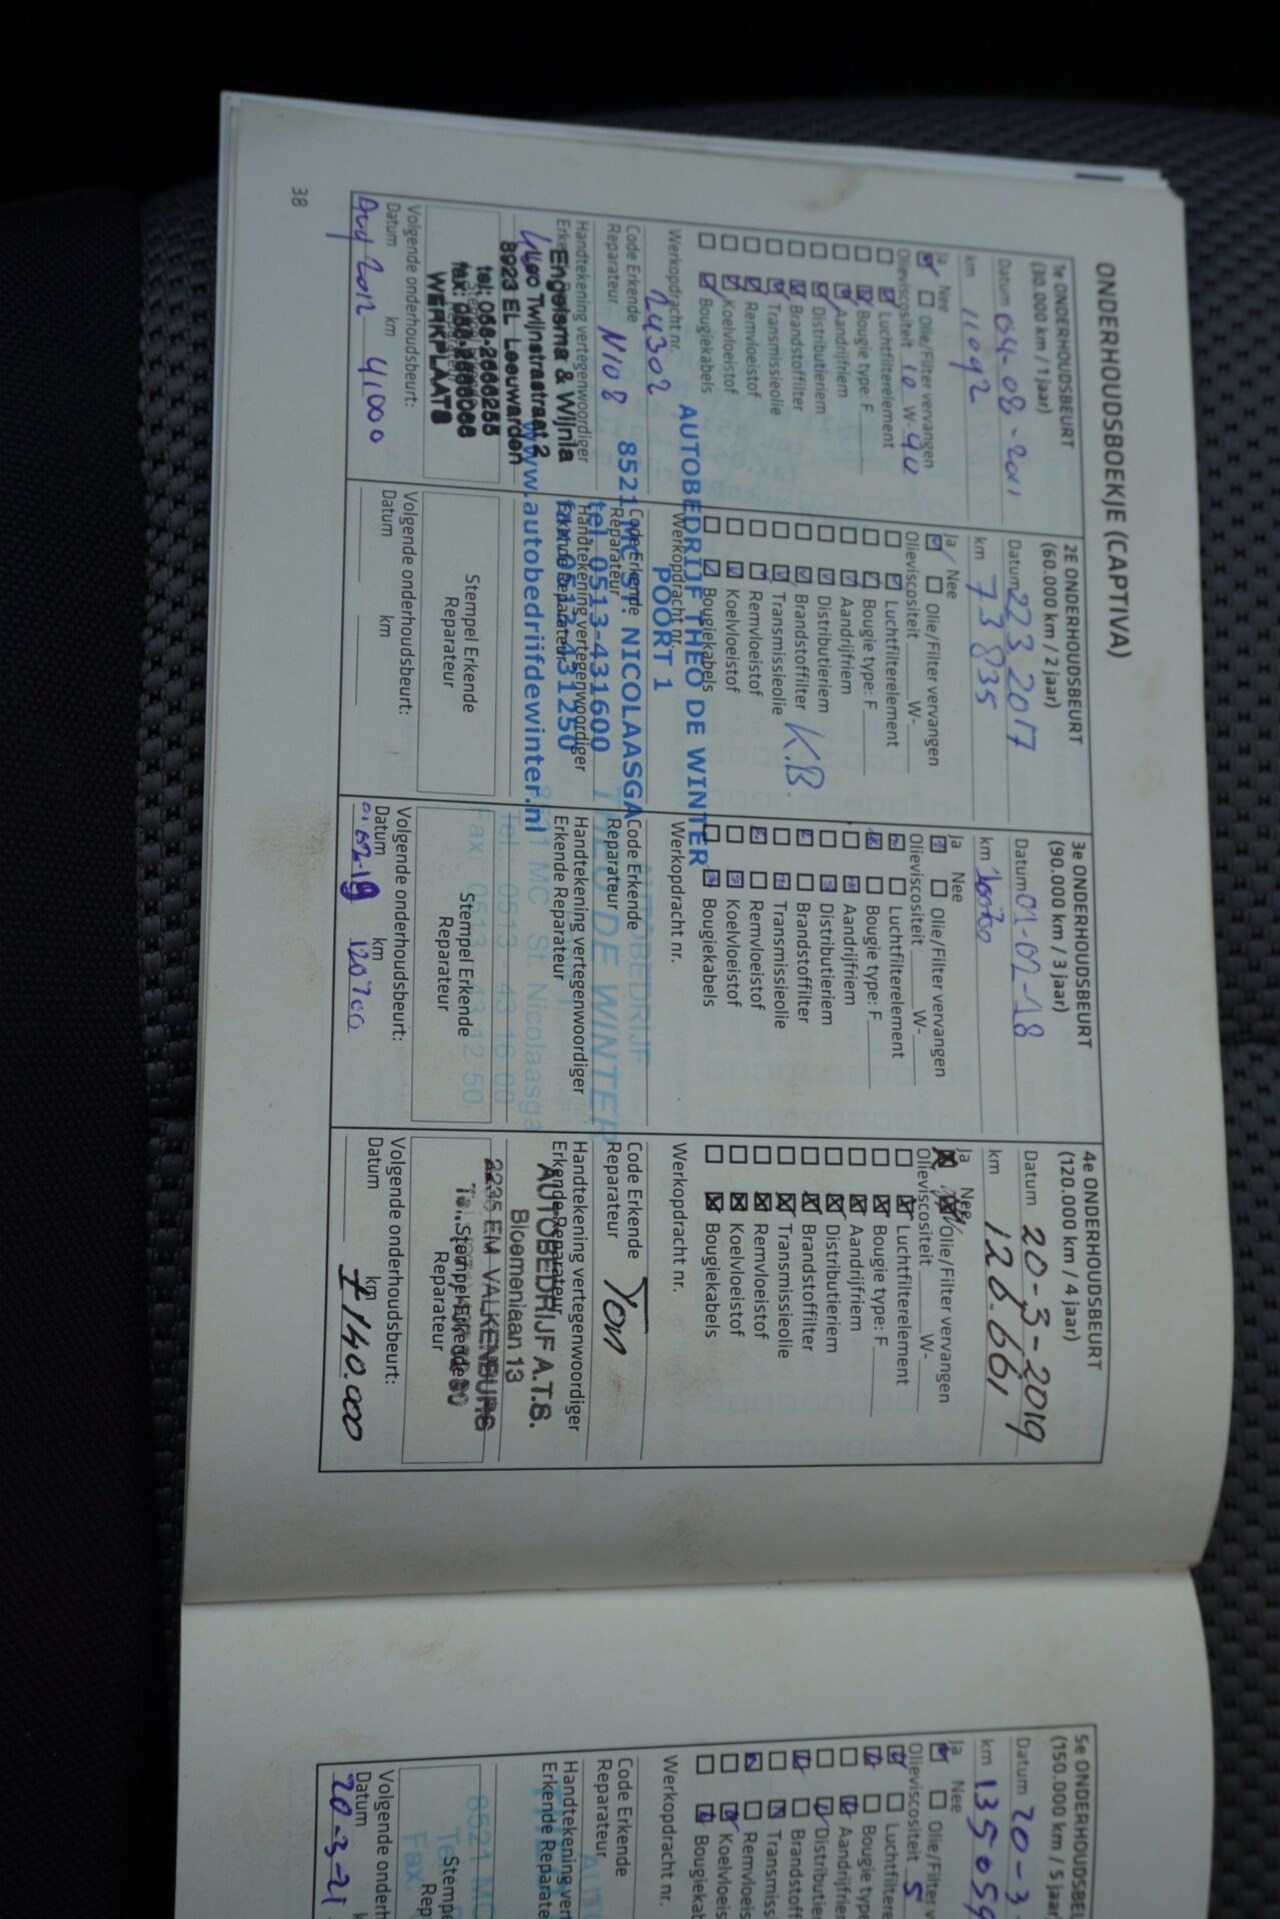 ONDERHOUDSBOEKJE (CAPTIVA)
1e ONDERHOUDSBEURT
(30.000 km / 1 jaar)
Datum 04-08-2011
km 11092
Ja Nee
Olie/Filter vervangen
Olieviscositeit 10 W-40
Luchtfilterelement
Bougie type: F
Aandrijfriem
Distributieriem
Brandstoffilter
Transmissieolie
Remvloeistof
Koelvloeistof
Bougiekabels
Werkopdracht nr.
24302
Code Erkende
Reparateur N108
Handtekening vertegenwoordiger
Engelsma & Wijnia
Twijnstraat 2
8923 EL Leeuwarden
tel: 058-2666255
WERKPLAATS
Volgende onderhoudsbeurt:
Datum km
Aug 2012 41000
2E ONDERHOUDSBEURT
(60.000 km / 2 jaar)
Datum 22 3 2017
km 73835
Ja Nee
Olie/Filter vervangen
Olieviscositeit W-
Luchtfilterelement
Bougie type: F
Aandrijfriem
Distributieriem
Brandstoffilter K.B.
Transmissieolie
Remvloeistof
Koelvloeistof
Bougiekabels
Werkopdracht nr.
AUTOBEDRIJF THEO DE WINTER
POORT 1
8521 MC ST. NICOLAASGA
tel. 0513-431600
fax 0513-431250
www.autobedrijfdewinter.nl
Code Erkende
Reparateur
Handtekening vertegenwoordiger
Erkende Reparateur
Stempel Erkende
Reparateur
Volgende onderhoudsbeurt:
Datum km
3e ONDERHOUDSBEURT
(90.000 km / 3 jaar)
Datum 01-02-18
km 100700
Ja Nee
Olie/Filter vervangen
Olieviscositeit W-
Luchtfilterelement
Bougie type: F
Aandrijfriem
Distributieriem
Brandstoffilter
Transmissieolie
Remvloeistof
Koelvloeistof
Bougiekabels
Werkopdracht nr.
Code Erkende
Reparateur
AUTOBEDRIJF
THEO DE WINTER
Handtekening vertegenwoordiger
Erkende Reparateur
8521 MC St. Nicolaasga
Tel.: 0513 - 43 16 00
Fax: 0513 - 43 12 50
Stempel Erkende
Reparateur
Volgende onderhoudsbeurt:
Datum km
01-02-19 120700
4e ONDERHOUDSBEURT
(120.000 km / 4 jaar)
Datum 20-3-2019
km 126.661
Ja Nee
Olie/Filter vervangen
Olieviscositeit W-
Luchtfilterelement
Bougie type: F
Aandrijfriem
Distributieriem
Brandstoffilter
Transmissieolie
Remvloeistof
Koelvloeistof
Bougiekabels
Werkopdracht nr.
Code Erkende
Reparateur
Handtekening vertegenwoordiger
Erkende Reparateur
AUTOBEDRIJF A.T.S.
Bloemenlaan 13
2235 EM VALKENBURG
Stempel Erkende
Reparateur
Volgende onderhoudsbeurt:
Datum km
± 140.000
38
5e ONDERHOUDSBEU
(150.000 km / 5 jaar
Datum 20-3
km 135059
Ja Nee
Olie/Filter v
Olieviscositeit 5
Luchtfiltere
Bougie type
Aandrijfrie
Distributie
Brandstoff
Transmiss
Remvloeis
Koelvloeis
Bougiekab
Werkopdracht nr.
Code Erkende
Reparateur
Handtekening ver
Erkende Reparate
8521 MC
Fax
Stempe
Rep
Volgende onderh
Datum k
20-3-21